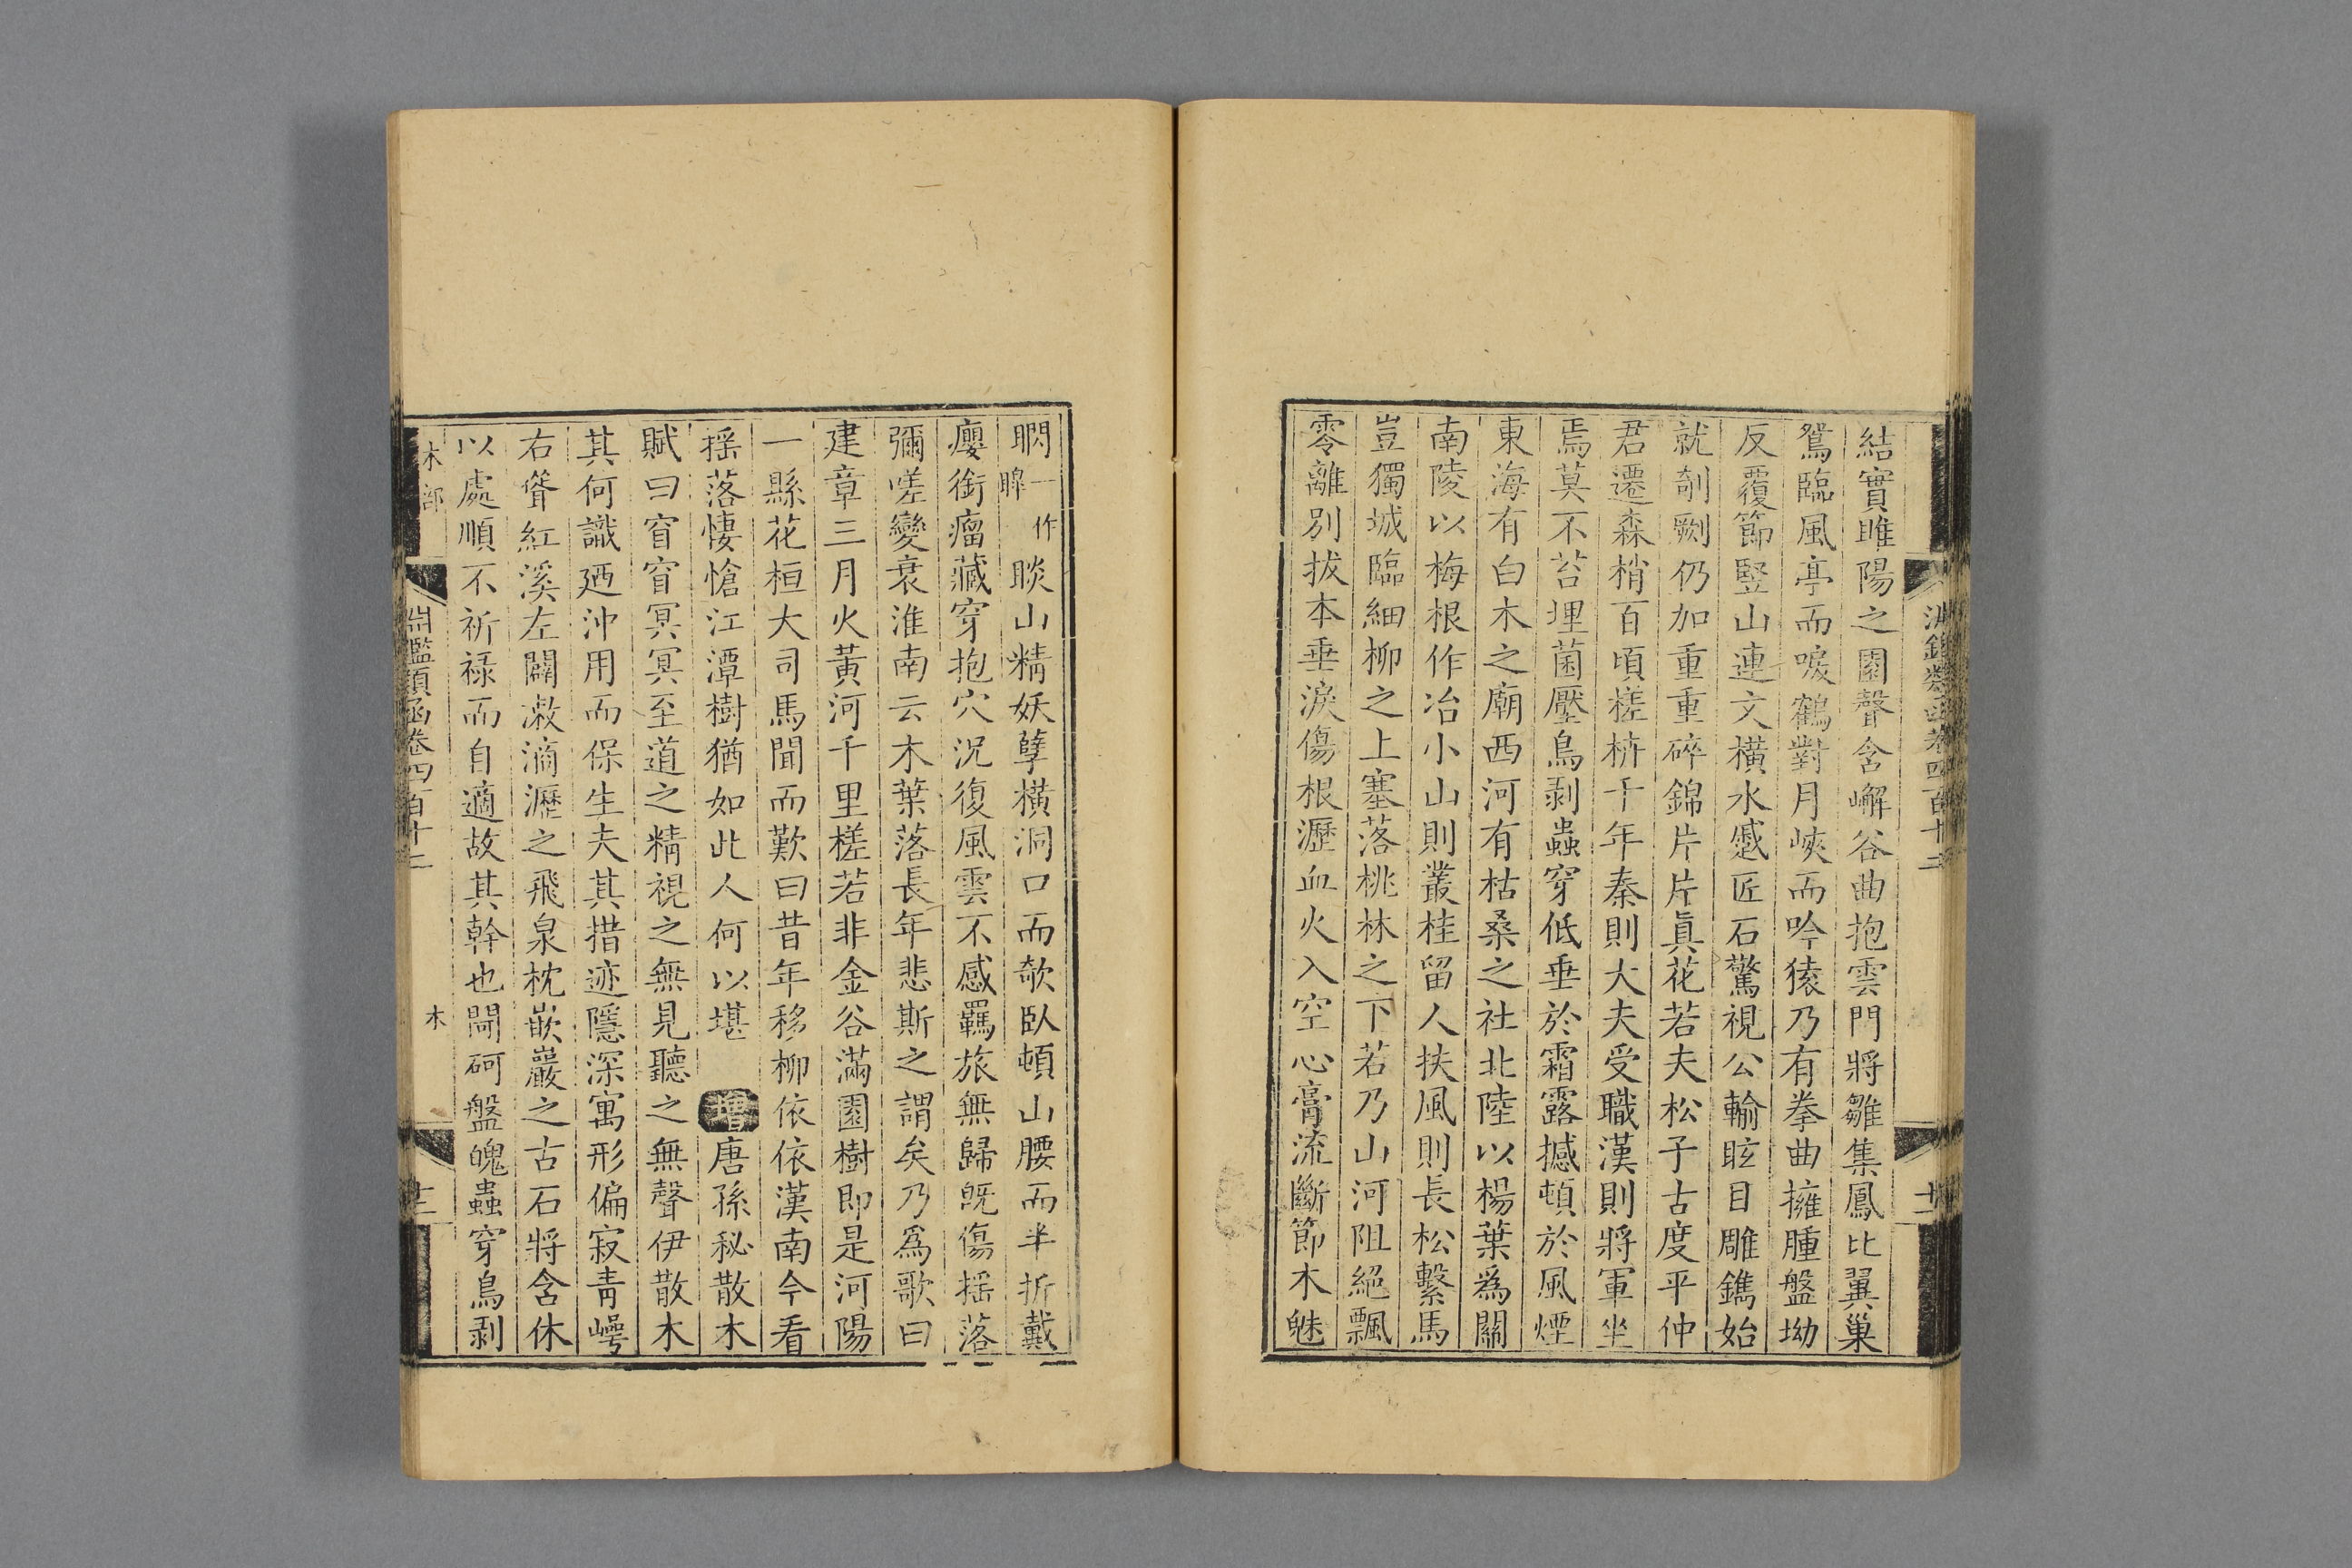 結實睢陽之園聲含嶰谷曲抱雲門將雛集鳳比翼巢
鴛臨風亭而唳鶴對月峽而吟猿乃有拳曲擁腫盤坳
反覆節竪山連文橫水蹙匠石驚視公輸眩目雕鐫始
就剞劂仍加重重碎錦片片眞花若夫松子古度平仲
君遷森梢百頃槎枿千年秦則大夫受職漢則將軍坐
焉莫不苔埋菌壓鳥剥蟲穿低垂於霜露撼頓於風煙
東海有白木之廟西河有枯桑之社北陸以楊葉爲關
南陵以梅根作冶小山則叢桂留人扶風則長松繫馬
豈獨城臨細柳之上塞落桃林之下若乃山河阻絕飄
零離別拔本垂淚傷根瀝血火入空心膏流斷節木魅
淵鑑類函卷四百十二
十二
䦧一作睥睒山精妖孽橫洞口而欹臥頓山腰而半折戴
癭銜瘤藏穿抱穴況復風雲不感羈旅無歸旣傷摇落
彌嗟變衰淮南云木葉落長年悲斯之謂矣乃爲歌曰
建章三月火黃河千里槎若非金谷滿園樹即是河陽
一縣花桓大司馬聞而歎曰昔年移柳依依漢南今看
摇落悽愴江潭樹猶如此人何以堪 增唐孫秘散木
賦曰窅窅冥冥至道之精視之無見聽之無聲伊散木
其何識廼沖用而保生夫其措迹隱深寓形偏寂青㟧
右聳紅溪左闢漱滴瀝之飛泉枕嵌巖之古石將含休
以處順不祈祿而自適故其幹也閜砢盤魄蟲穿鳥剥
木部
淵鑑類函卷四百十二
木
十三